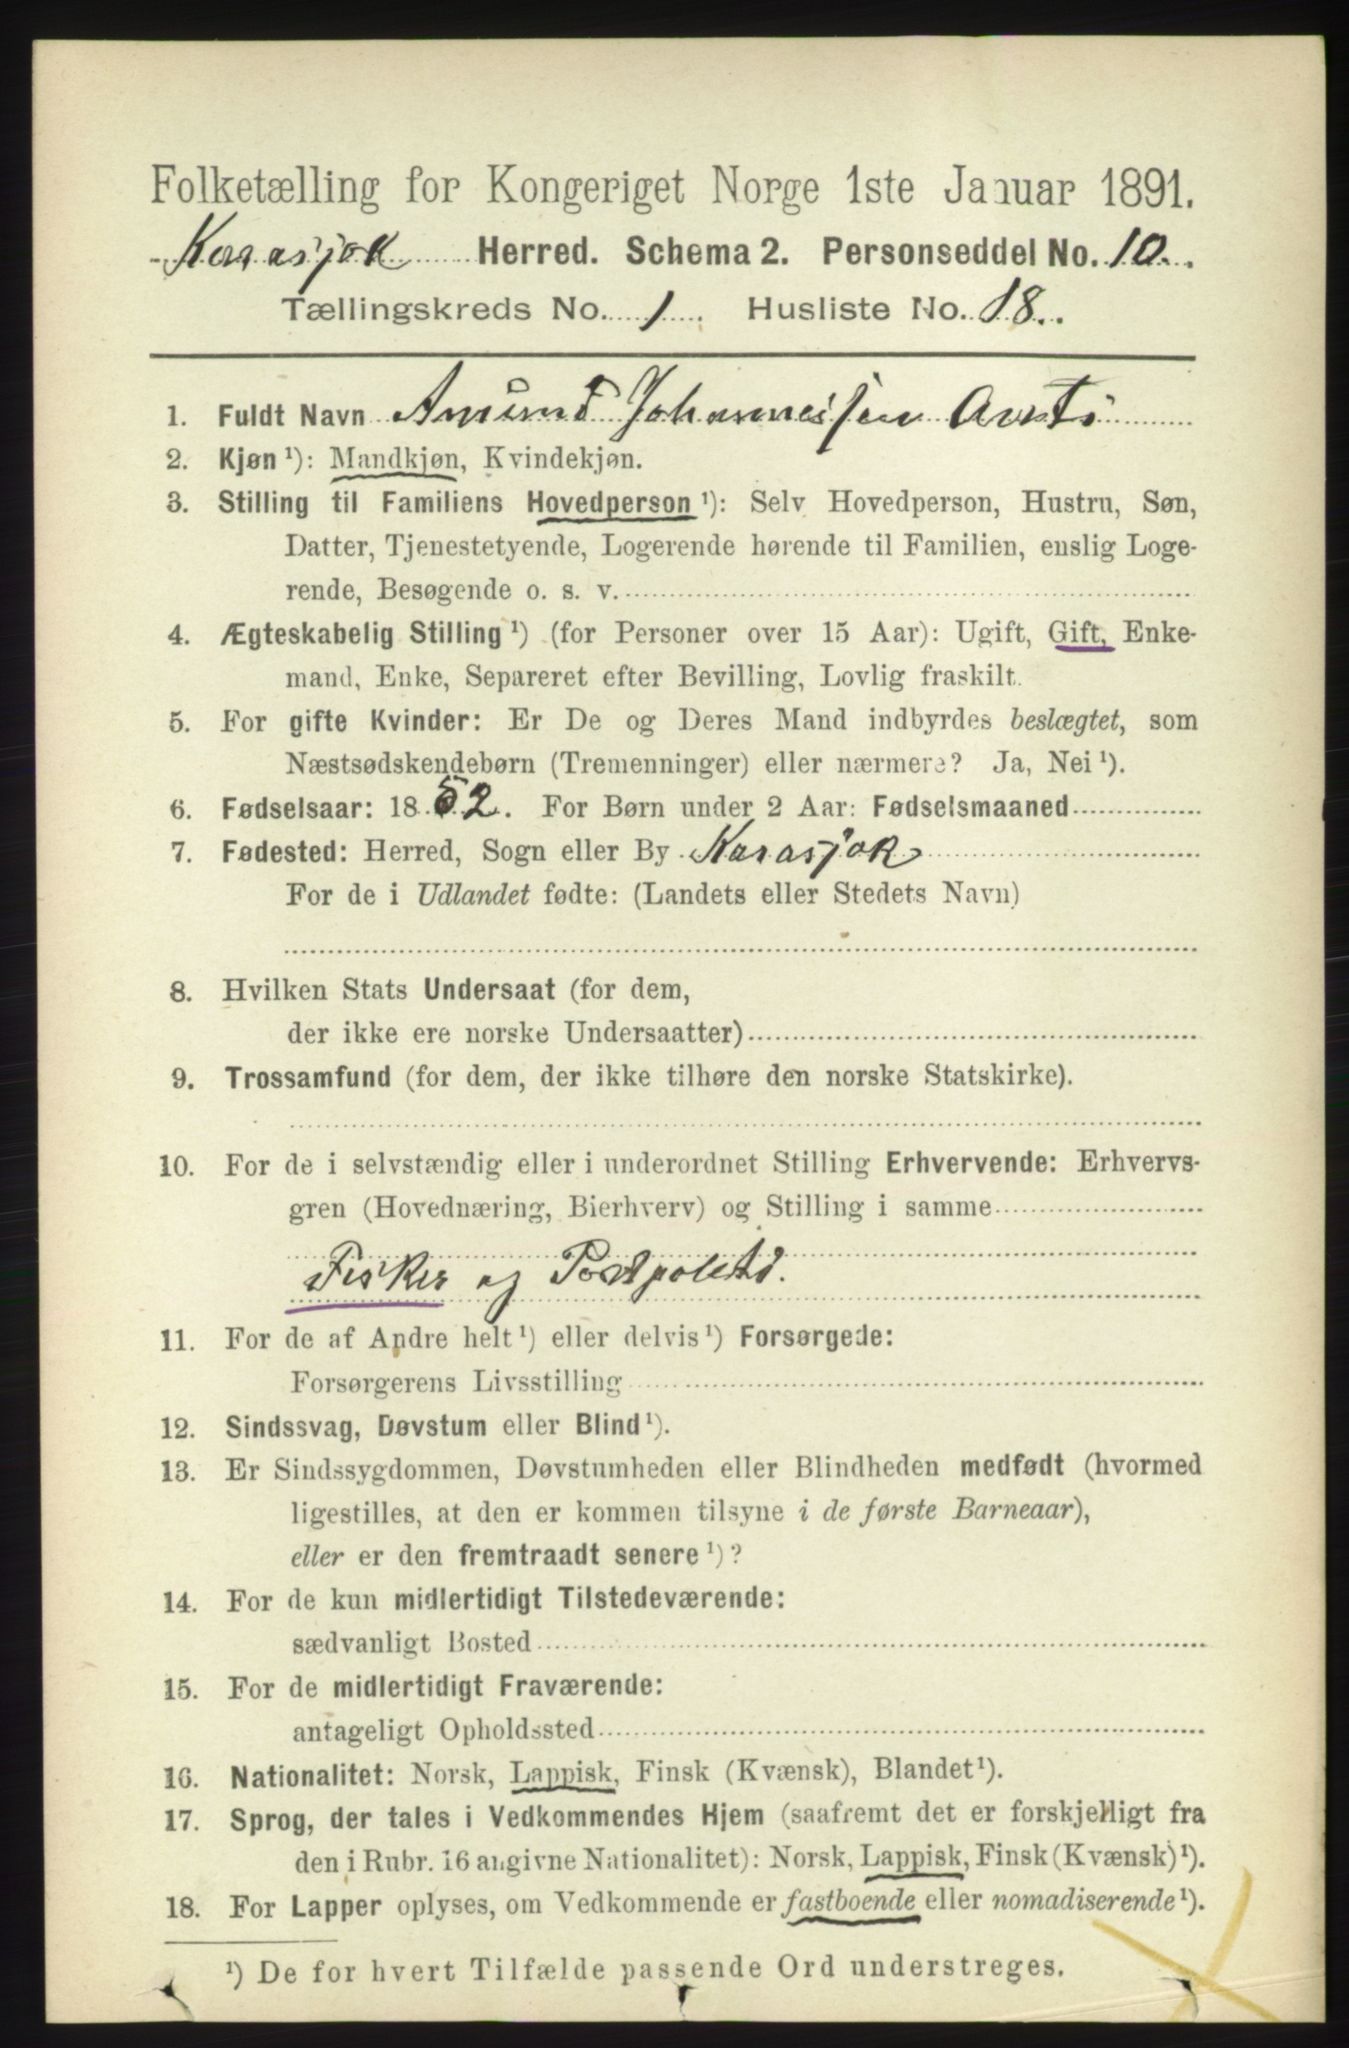 Folketælling for Kongeriget Norge 1ste Januar 1891.
Karasjok Herred. Schema 2. Personseddel No. 10.
Tællingskreds No. 1. Husliste No. 18.
1. Fuldt Navn Amund Johannessen Avsti
2. Kjøn ¹): Mandkjøn, Kvindekjøn.
3. Stilling til Familiens Hovedperson ¹): Selv Hovedperson, Hustru, Søn,
Datter, Tjenestetyende, Logerende hørende til Familien, enslig Loge-
rende, Besøgende o. s. v.
4. Ægteskabelig Stilling ¹) (for Personer over 15 Aar): Ugift, Gift, Enke-
mand, Enke, Separeret efter Bevilling, Lovlig fraskilt.
5. For gifte Kvinder: Er De og Deres Mand indbyrdes beslægtet, som
Næstsødskendebørn (Tremenninger) eller nærmere? Ja, Nei ¹).
6. Fødselsaar: 1852. For Børn under 2 Aar: Fødselsmaaned
7. Fødested: Herred, Sogn eller By Karasjok
For de i Udlandet fødte: (Landets eller Stedets Navn)
8. Hvilken Stats Undersaat (for dem,
der ikke ere norske Undersaatter)
9. Trossamfund (for dem, der ikke tilhøre den norske Statskirke).
10. For de i selvstændig eller i underordnet Stilling Erhvervende: Erhvervs-
gren (Hovednæring, Bierhverv) og Stilling i samme
Fisker og
11. For de af Andre helt ¹) eller delvis ¹) Forsørgede:
Forsørgerens Livsstilling
12. Sindssvag, Døvstum eller Blind ¹).
13. Er Sindssygdommen, Døvstumheden eller Blindheden medfødt (hvormed
ligestilles, at den er kommen tilsyne i de første Barneaar),
eller er den fremtraadt senere ¹)?
14. For de kun midlertidigt Tilstedeværende:
sædvanligt Bosted
15. For de midlertidigt Fraværende:
antageligt Opholdssted
16. Nationalitet: Norsk, Lappisk, Finsk (Kvænsk), Blandet ¹).
17. Sprog, der tales i Vedkommendes Hjem (saafremt det er forskjelligt fra
den i Rubr. 16 angivne Nationalitet): Norsk, Lappisk, Finsk (Kvænsk) ¹).
18. For Lapper oplyses, om Vedkommende er fastboende eller nomadiserende ¹).
¹) De for hvert Tilfælde passende Ord understreges.